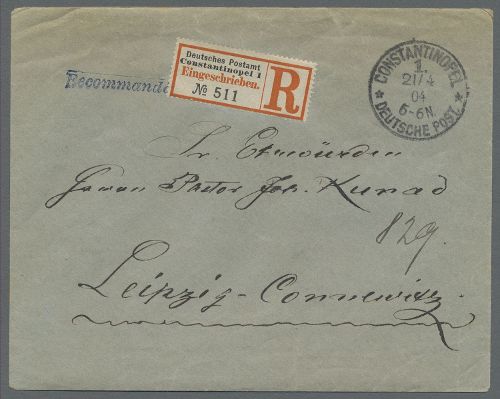 Deutsches Postamt
Constantinopel 1
Eingeschrieben.
№ 511
R
Recommandé
CONSTANTINOPEL
1
21/4
04
5-6N.
* DEUTSCHE POST. *
Sr. Ehrwürden
Herrn Pastor Joh. Kunad
829.
Leipzig-Connewitz.